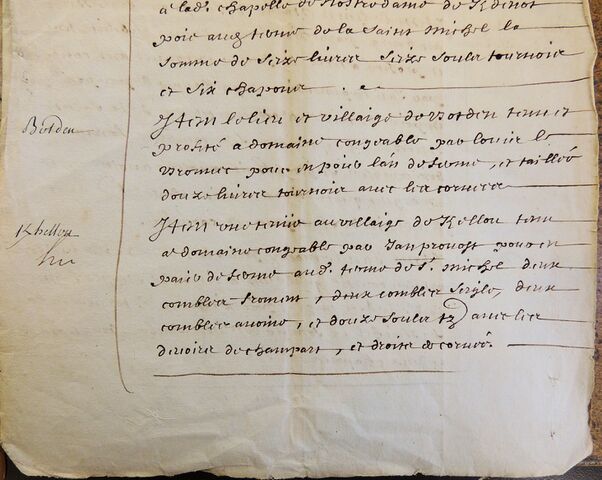 a lad. chapelle de Nostredame de Kdinot
poie aud terme de la Saint Michel la
somme de seize livres seize soulz tournois
et six chapons
Botden
Item le lieu et villaige de Botden tenu et
profité a domaine congeable par Louis le
pour en poier l'an de ferme, et taillée
douze livres tournois avec les corvees
Khellou
Item une tenue au villaige de Kellou tenu
a domaine congeable par Jan provost pour en
paier de ferme aud. terme de St. Michel deux
combles froment, deux combles seigle, deux
combles avoine, et douze soulz tz avec les
devoirs de champart, et droits de corvé.